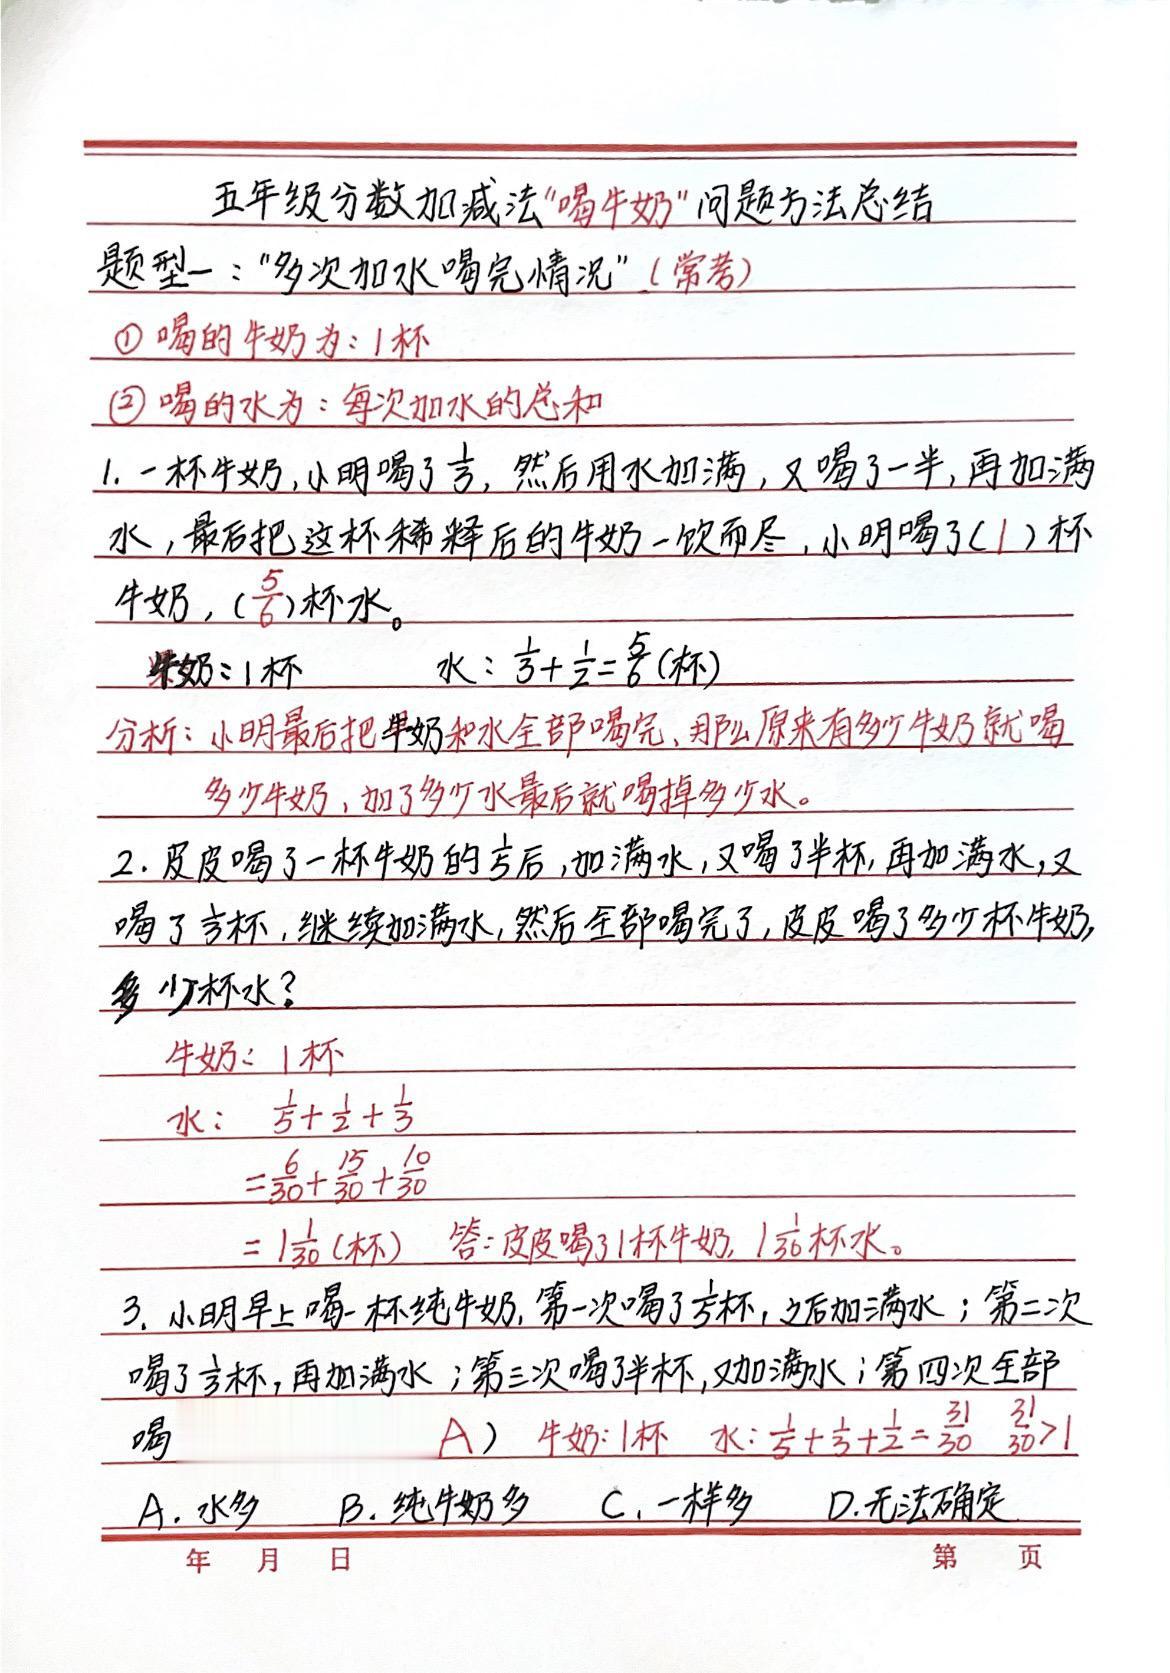 五年级分数加减法"喝牛奶"问题方法总结
题型一："多次加水喝完情况"（常考）
① 喝的牛奶为：1杯
② 喝的水为：每次加水的总和
1. 一杯牛奶，小明喝了1/3，然后用水加满，又喝了一半，再加满
水，最后把这杯稀释后的牛奶一饮而尽，小明喝了（1）杯
牛奶，（5/6）杯水。
牛奶：1杯 水：1/3+1/2=5/6（杯）
分析：小明最后把牛奶和水全部喝完、那么原来有多少牛奶就喝
多少牛奶，加了多少水最后就喝掉多少水。
2. 皮皮喝了一杯牛奶的1/5后，加满水，又喝了半杯，再加满水，又
喝了1/3杯，继续加满水，然后全部喝完了，皮皮喝了多少杯牛奶，
多少杯水？
牛奶：1杯
水： 1/5+1/2+1/3
=6/30+15/30+10/30
=1 1/30（杯） 答：皮皮喝了1杯牛奶，1 1/30杯水。
3. 小明早上喝一杯纯牛奶，第一次喝了1/5杯，之后加满水；第二次
喝了1/3杯，再加满水；第三次喝了半杯，又加满水；第四次全部
喝 A） 牛奶：1杯 水：1/5+1/3+1/2=31/30 31/30>1
A. 水多 B. 纯牛奶多 C. 一样多 D. 无法确定
年 月 日 第 页